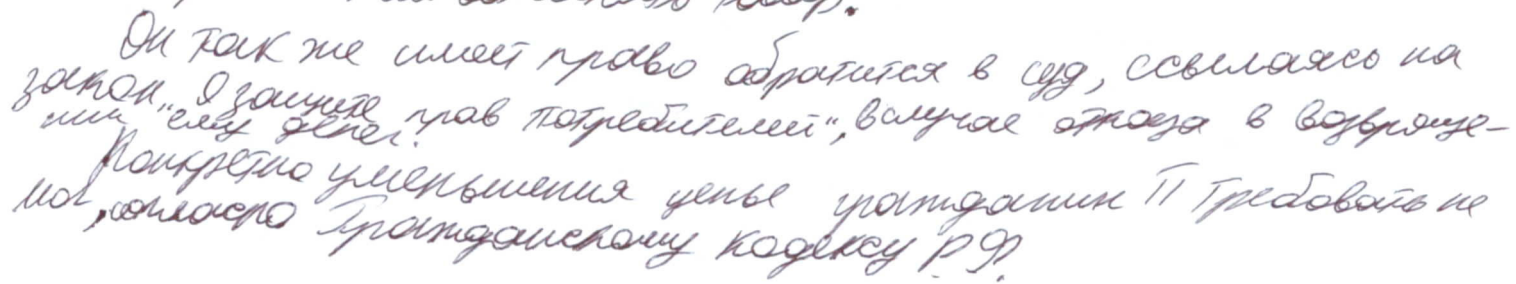 Он так же имеет право обратится в суд, ссылаясь на
закон „О защите прав потребителей“, в случае отказа в возвраще-
нии ему денег.
Конкретно уменьшения цены гражданин П требовать не
мог, согласно Гражданскому кодексу РФ.